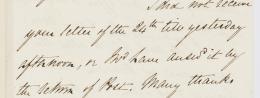 I did not receive
your letter of the 24th till yesterday
afternoon, or I wd have answd it by
the return of Post. Many thanks